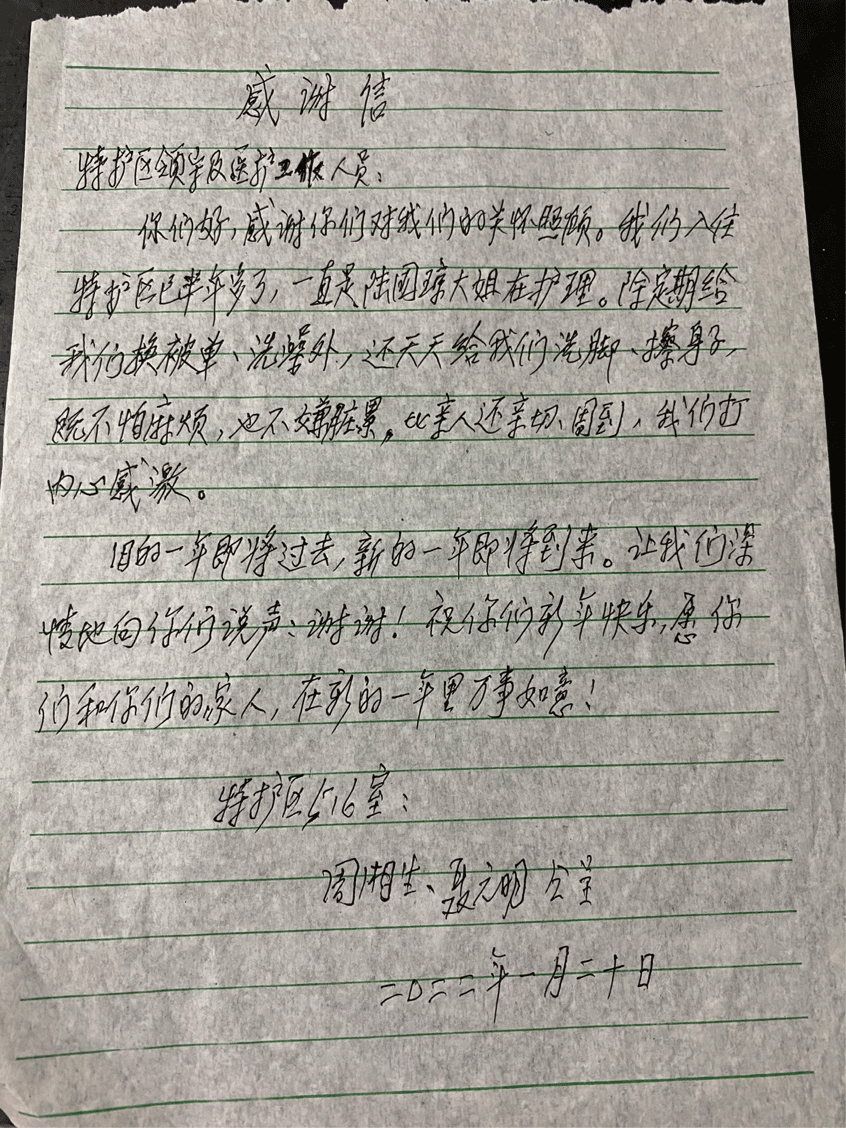 感谢信
特护区领导及医护工作人员：
你们好，感谢你们对我们的关怀照顾。我们入住
特护区已半年多了，一直是陆国琼大姐在护理。除定期给
我们换被单、洗澡外，还天天给我们洗脚、擦身子，
既不怕麻烦，也不嫌脏累，比亲人还亲切、周到，我们打
内心感激。
旧的一年即将过去，新的一年即将到来。让我们深
情地向你们说声：谢谢！祝你们新年快乐，愿你
们和你们的家人，在新的一年里万事如意！
特护区516室：
周湘生、聂元明 仝呈
二〇二二年一月二十日